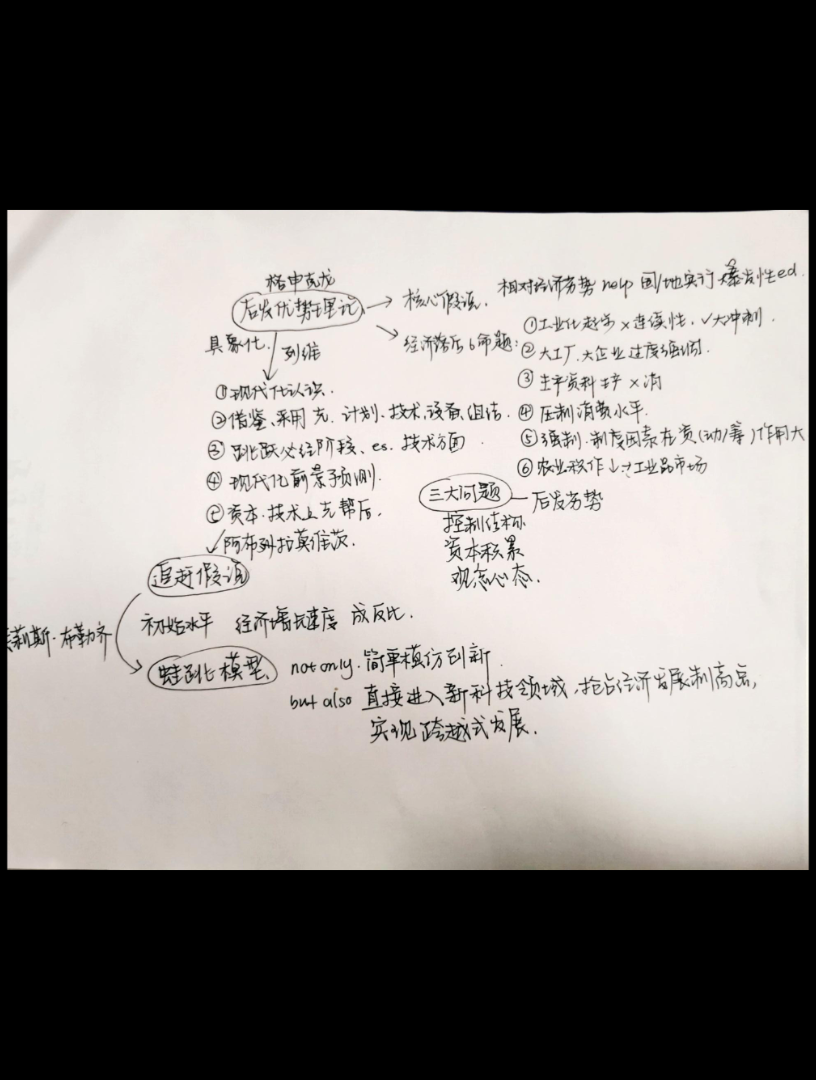 格申克龙
后发优势理论 → 核心假设. 相对经济劣势 help 国/地实行 爆发性ed.
具象化. 列维
经济落后6命题:
①工业化起步 × 连续性, ✓大冲刺.
②大工厂、大企业过度强调.
③生产资料生产 × 消
④压制消费水平.
⑤强制.制度因素在资(动/筹)作用大
⑥农业积作↓ 工业品市场
①现代化认识.
②借鉴、采用 先. 计划.技术、设备、组结.
③跳跃必经阶段、es. 技术方面
④现代化前景予预测.
⑤资本.技术上先帮后.
三大问题 — 后发劣势
控制结构
资本积累
观念心态.
阿布列拉莫维茨.
追赶假说
初始水平 经济增长速度 成反比.
莉斯·布勒齐
蛙跳模型 not only. 简单模仿到新.
but also 直接进入新科技领域,抢占经济发展制高点,
实现跨越式发展.